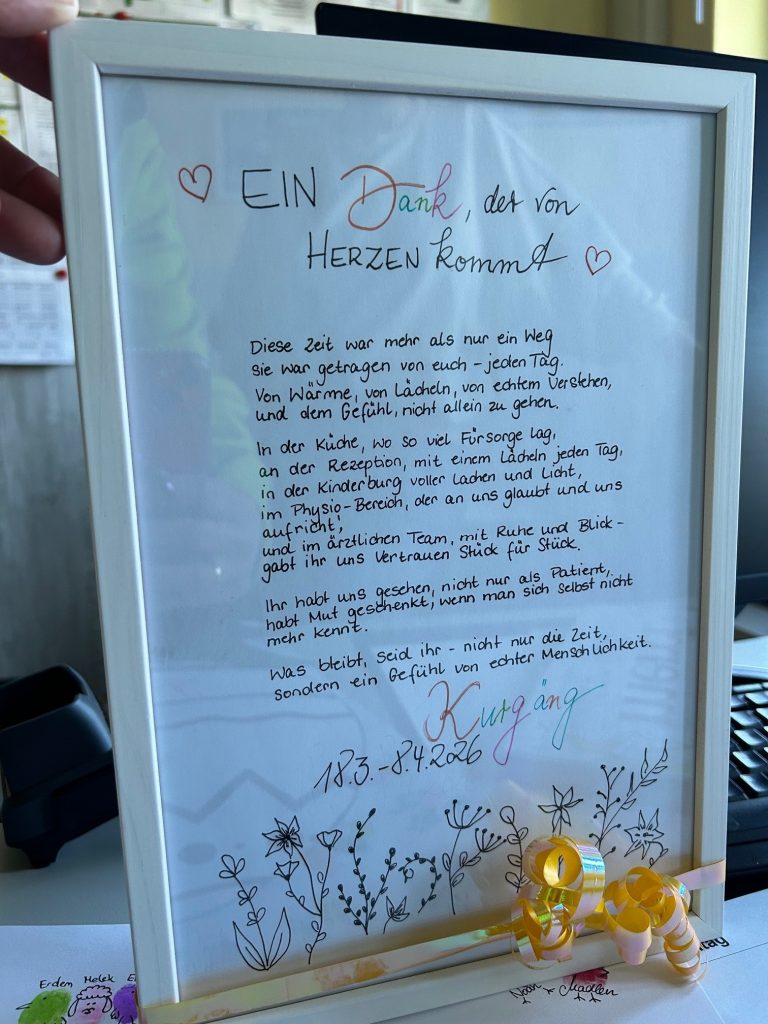 EIN Dank, der von
HERZEN kommt
Diese Zeit war mehr als nur ein Weg
sie war getragen von euch - jeden Tag.
Von Wärme, von Lächeln, von echtem Verstehen,
und dem Gefühl, nicht allein zu gehen.
In der Küche, wo so viel Fürsorge lag,
an der Rezeption, mit einem Lächeln jeden Tag,
in der Kinderburg voller Lachen und Licht,
im Physio-Bereich, der an uns glaubt und uns
aufricht',
und im ärztlichen Team, mit Ruhe und Blick -
gabt ihr uns Vertrauen Stück für Stück.
Ihr habt uns gesehen, nicht nur als Patient,
habt Mut geschenkt, wenn man sich selbst nicht
mehr kennt.
Was bleibt, seid ihr - nicht nur die Zeit,
sondern ein Gefühl von echter Menschlichkeit.
Kurgäng
18.3.-8.4.2026
Erdem Melek
Noah Madlen